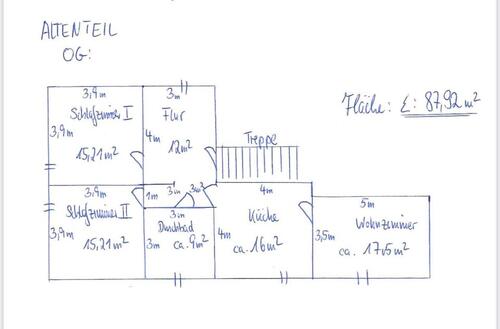 ALTENTEIL
OG:
3,9m
Schlafzimmer I
3,9m
15,21m²
3m
Flur
4m
12m²
Fläche: Σ: 87,92m²
Treppe
3,9m
Schlafzimmer II
3,9m
15,21m²
1m
3m
3m²
3m
Duschbad
3m
ca. 9m²
4m
Küche
4m
ca. 16m²
5m
Wohnzimmer
3,5m
ca. 17,5m²